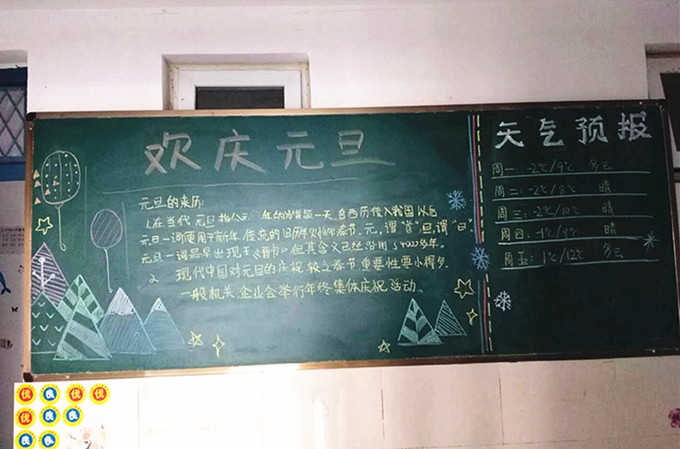 欢庆元旦
元旦的来历:
1.在当代 元旦指公元 年的岁首第一天 自西历传入我国以后
元旦一词便用于新年 传统的旧历年则称春节。元, 谓"首" 旦谓"日"
元旦一词最早出现于《晋书》但其含义已经沿用了4000多年。
2. 现代中国对元旦的庆祝 较之春节 重要性要小得多。
一般机关、企业会举行年终集体庆祝活动。
天气预报
周一: -2℃/9℃ 多云
周二: -2℃/8℃ 晴
周三: -2℃/10℃ 晴
周四: -1℃/9℃ 晴
周五: 1℃/12℃ 多云
优 良 优 优
优 良 良
良 良